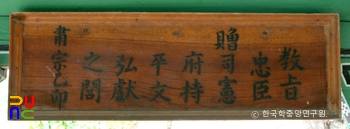 教旨
忠臣
贈司憲
府持
平文
弘獻
之閭
肅宗乙卯
ⓒ 한국학중앙연구원